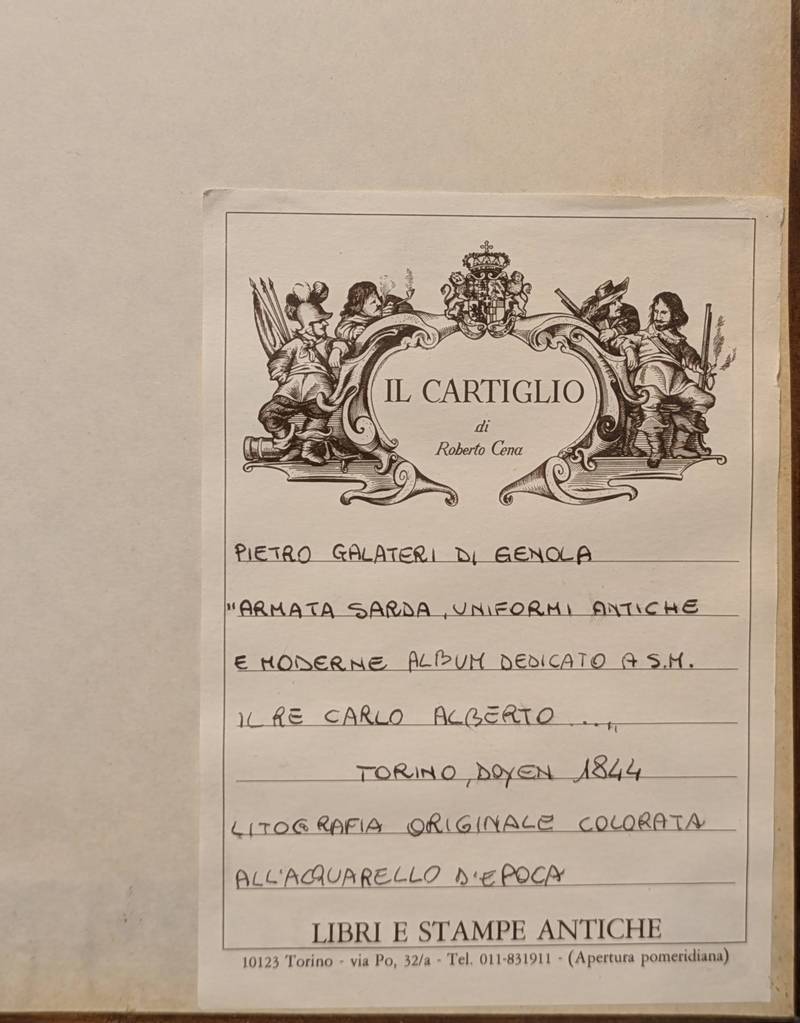 IL CARTIGLIO
di
Roberto Cena
PIETRO GALATERI DI GENOLA
"ARMATA SARDA, UNIFORMI ANTICHE
E MODERNE ALBUM DEDICATO A S.M.
IL RE CARLO ALBERTO ...,,
TORINO, DOYEN 1844
LITOGRAFIA ORIGINALE COLORATA
ALL'ACQUARELLO D'EPOCA
LIBRI E STAMPE ANTICHE
10123 Torino - via Po, 32/a - Tel. 011-831911 - (Apertura pomeridiana)